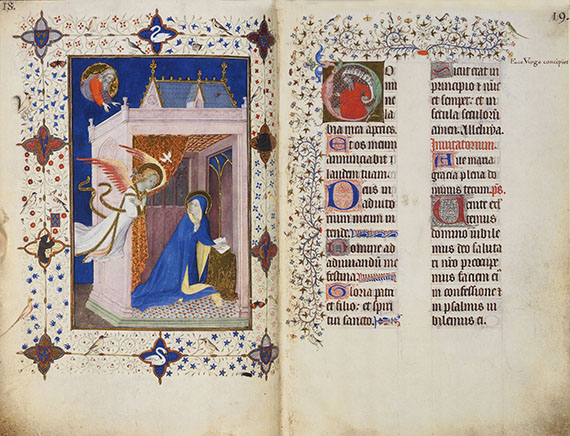 18.
19.
Ecce Virgo concipiet
bia mea aperies.
Et os meum
annunciabit
laudem tuam.
Deus in
adiuto
rium meum in
tende.
Domine ad
adiuuandum me
festina.
Gloria patri
et filio: et spiri
tui sancto.
Sicut erat in
principio et nūc
et semper: et in
secula seculorū
amen. Alleluya.
Inuitatorium.
Aue maria
gracia plena do
minus tecum. ps.
Uenite ex
ultemus
domino iubile
mus deo saluta
ri nr̄o preoccupe
mus faciem ei᷒
in confessione et
in psalmis iu
bilemus ei.